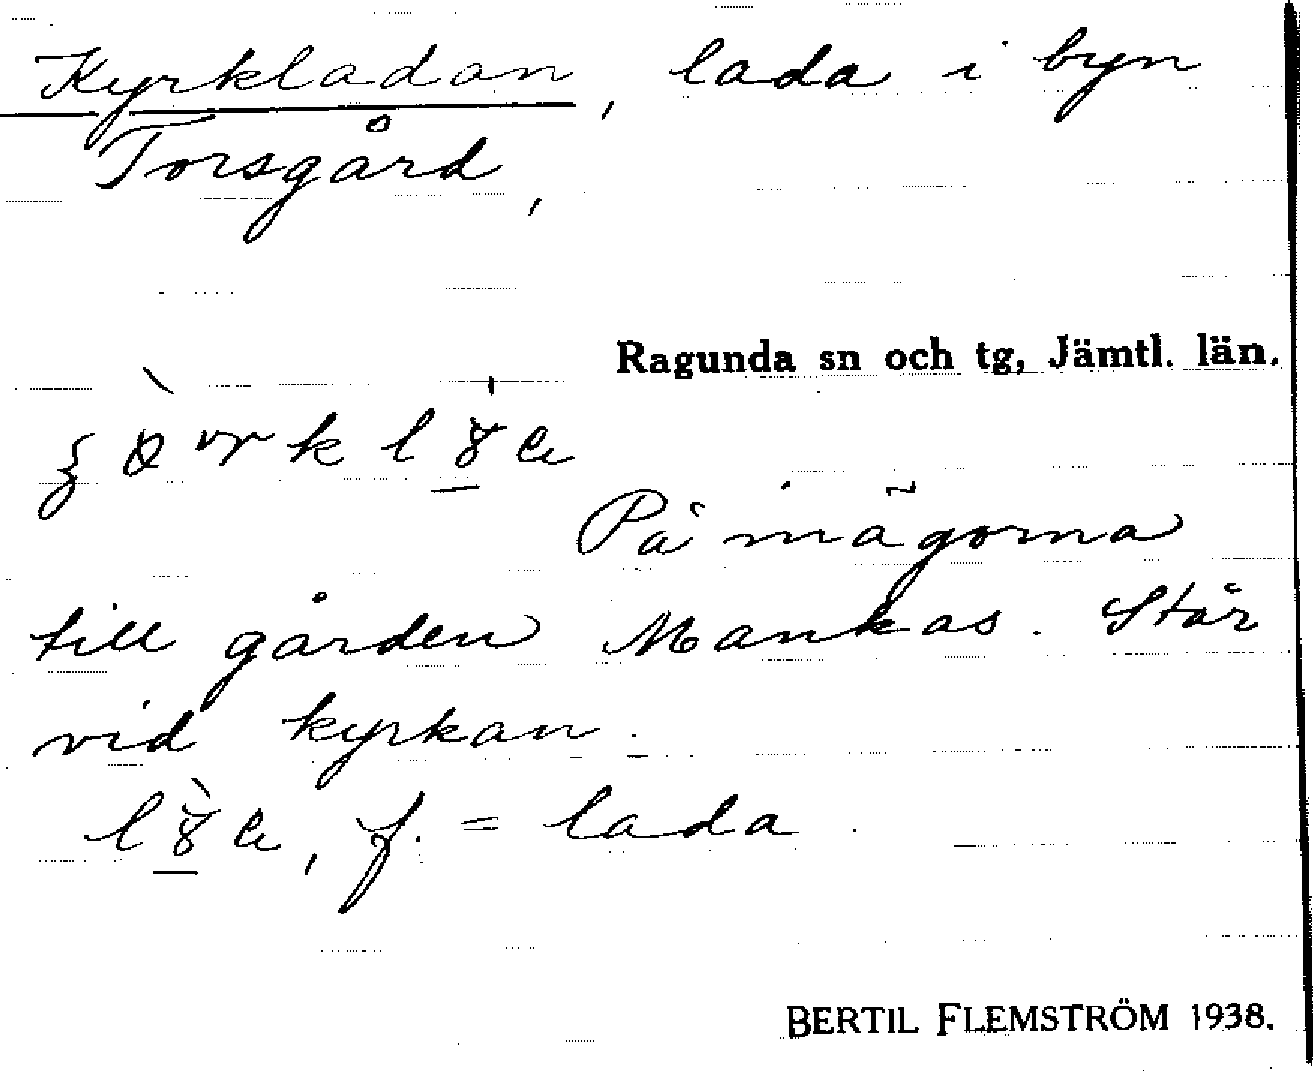 Kyrkladan, lada i byn
Torsgård,
Ragunda sn och tg, Jämtl. län.
På inägorna
till gården Mankas. Står
vid kyrkan.
f. = lada.
BERTIL FLEMSTRÖM 1938.